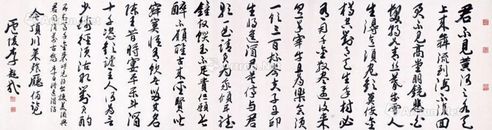 君不見黃河之水天
上來奔流到海不復回
君不見高堂明鏡悲白
髮朝如青絲暮成雪人
生得意須盡歡莫使金
樽空對月天生我材必
有用千金散盡還復來
烹羊宰牛且為樂會須
一飲三百杯岑夫子丹丘
生將進酒杯莫停與君
歌一曲請君為我傾耳聽
鐘鼓饌玉不足貴但願長
醉不願醒古來聖賢皆
寂寞惟有飲者留其名
陳王昔時宴平樂斗酒
十千恣歡謔主人何為言
少錢徑須沽取對君酌
五花馬千金裘呼兒將出換美酒與
爾同銷萬古愁